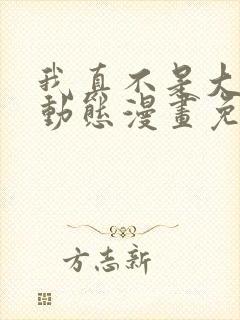 我真不是大
動態漫畫免
方志新